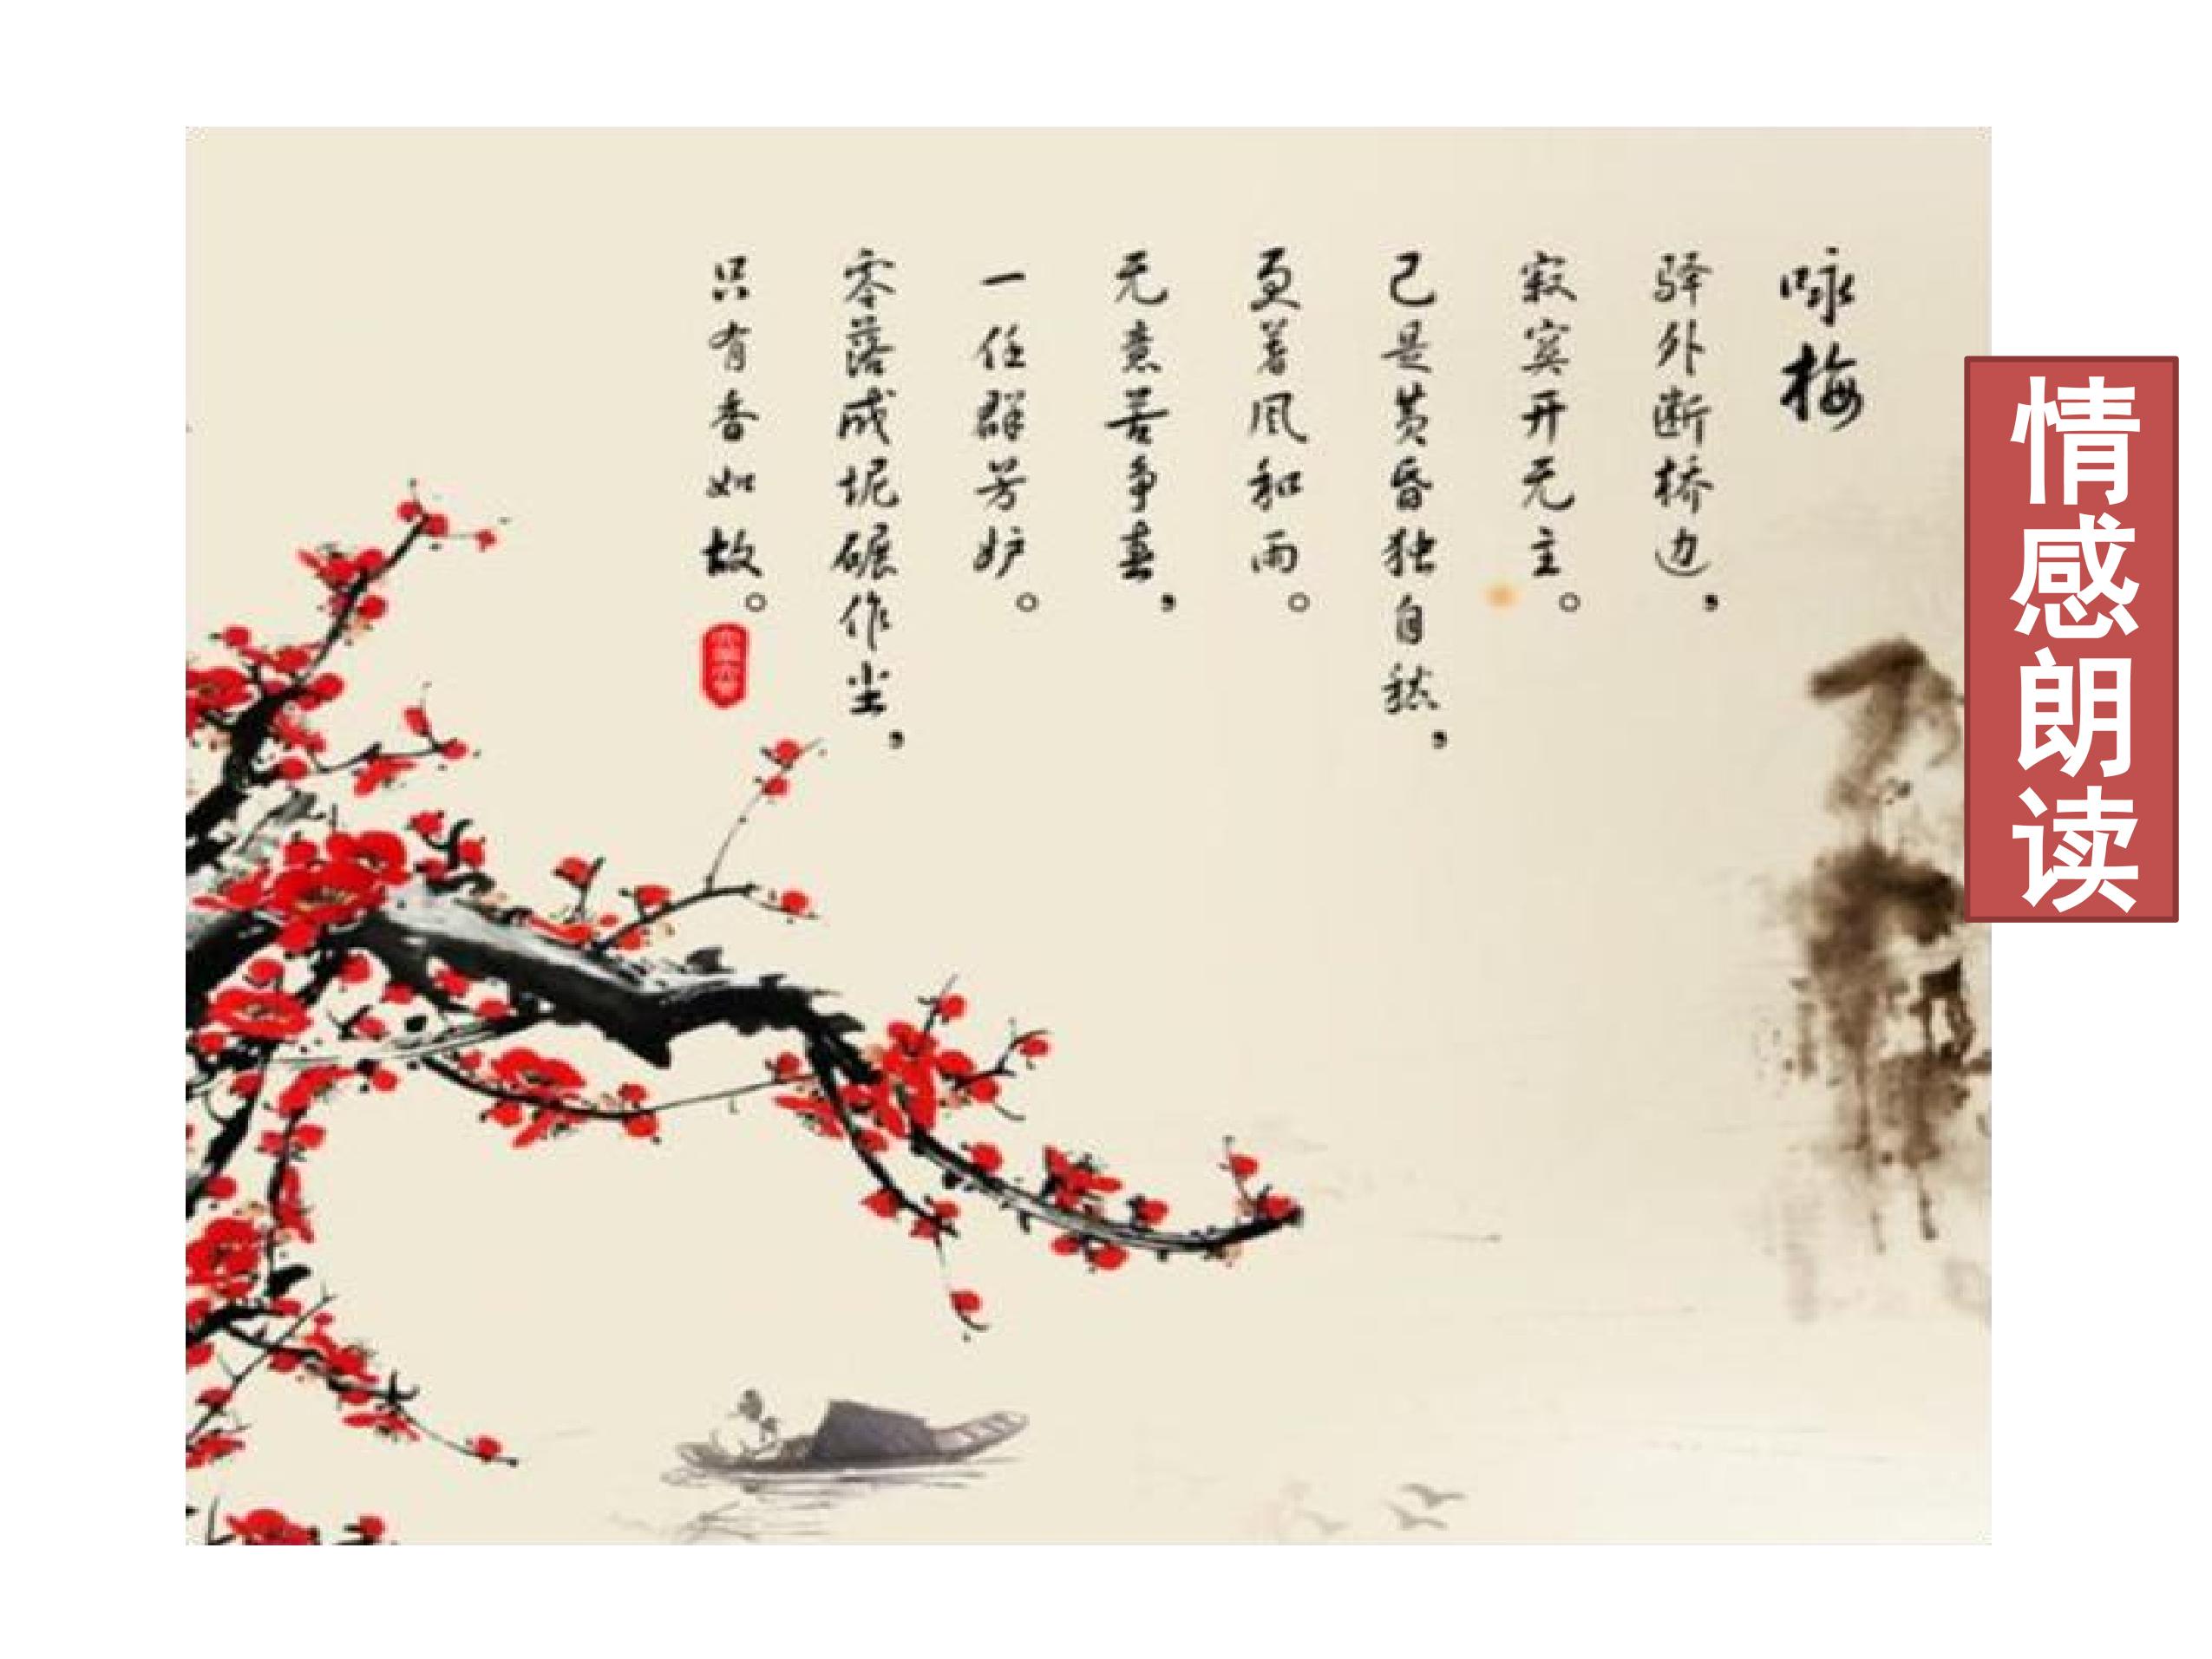 咏梅
驿外断桥边，
寂寞开无主。
已是黄昏独自愁，
更著风和雨。
无意苦争春，
一任群芳妒。
零落成坭碾作尘，
只有香如故。
情感朗读